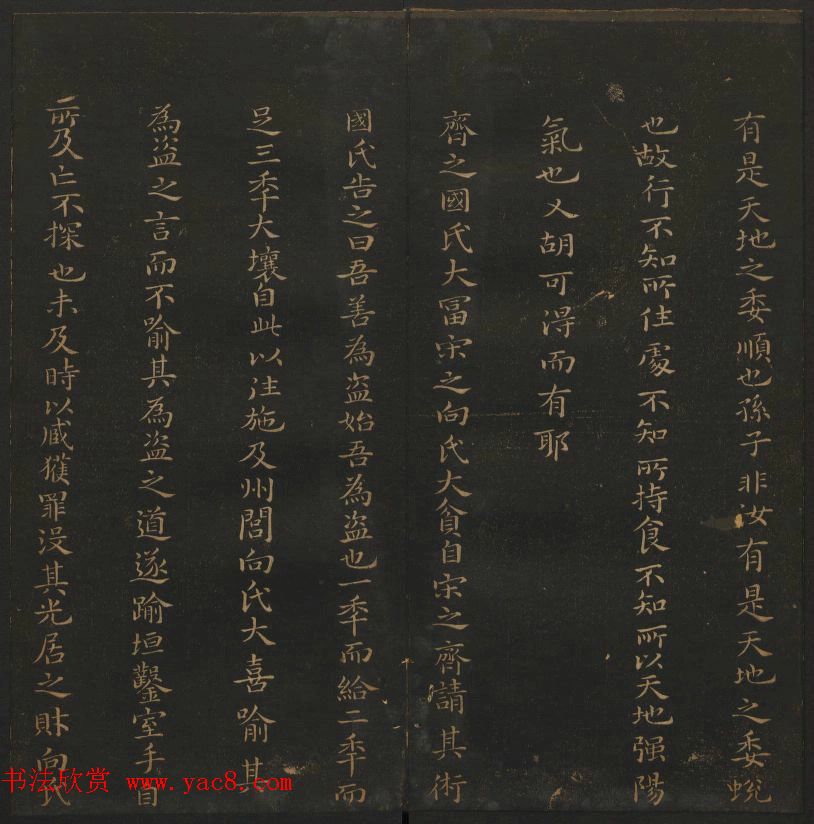 有是天地之委順也孫子非汝有是天地之委蛻
也故行不知所住處不知所持食不知所以天地强陽
氣也又胡可淂而有耶
齊之國氏大冨宋之向氏大貧自宋之齊請其術
國氏告之曰吾善為盗始吾為盗也一秊而給二秊而
足三秊大壤自此以往施及州閭向氏大喜喻其
為盗之言而不喻其為盗之道遂踰垣鑿室手目
所及亡不探也未及時以贓獲罪没其先居之財向氏
书法欣赏 www.yac8.com